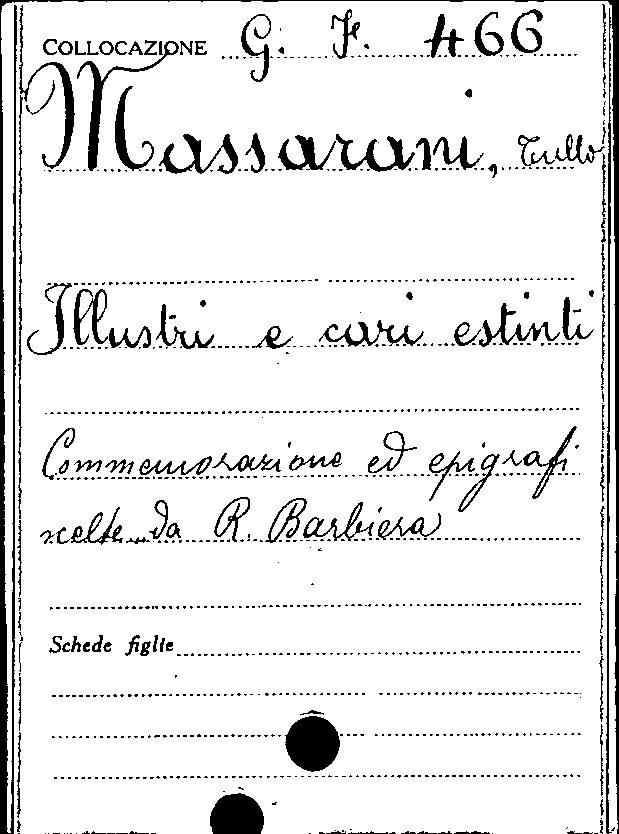 COLLOCAZIONE G. F. 466
Massarani, Tullo
Illustri e cari estinti
Commemorazione ed epigrafi
scelte da R. Barbiera
Schede figlie